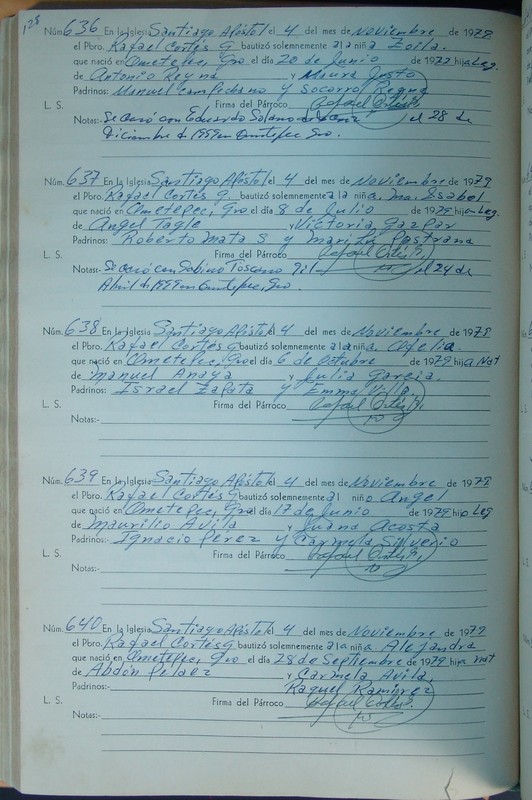 128
Núm. 636 En la Iglesia Santiago Apóstol el 4 del mes de Noviembre de 1979
el Pbro. Rafael Cortés G bautizó solemnemente a la niña Zoila.
que nació en Ometepec, Gro el día 20 de Junio de 1972 hija Leg.
de Antonio Reyna y Maura Justo
Padrinos: Manuel Campechano y Socorro Reyna
L. S. Firma del Párroco Rafael Cortés G.
Notas:- Se casó con Eduardo Solano el 28 de
Diciembre de 1999 en Ometepec Gro.
Núm. 637 En la Iglesia Santiago Apóstol el 4 del mes de Noviembre de 1979
el Pbro. Rafael Cortés G bautizó solemnemente a la niña, Ma. Isabel
que nació en Ometepec, Gro el día 8 de Julio de 1979 hija Leg
de Angel Tagle y Victoria Gazpar
Padrinos: Roberto Mata S y Maritza Pastrana
L. S. Firma del Párroco Rafael Cortés G.
Notas:- Se casó con Sabino Toscano Gil el 24 de
Abril de 1999 en Ometepec, Gro.
Núm. 638 En la Iglesia Santiago Apóstol el 4 del mes de Noviembre de 1979
el Pbro. Rafael Cortés G bautizó solemnemente a la niña. Ofelia
que nació en Ometepec, Gro el día 6 de Octubre de 1979 hija Nat
de Manuel Anaya y Julia Garcia.
Padrinos: Israel Zapata y Emma Villa
L. S. Firma del Párroco Rafael Cortés G.
Notas:-
Núm. 639 En la Iglesia Santiago Apóstol el 4 del mes de Noviembre de 1979
el Pbro. Rafael Cortés G bautizó solemnemente al niño Angel
que nació en Ometepec, Gro el día 17 de Junio de 1979 hijo Leg
de Maurilio Avila y Juana Acosta
Padrinos:- Ignacio Pérez y Carmela Silverio
L. S. Firma del Párroco Rafael Cortés G.
Notas:-
Núm. 640 En la Iglesia Santiago Apóstol el 4 del mes de Noviembre de 1979
el Pbro. Rafael Cortés G bautizó solemnemente a la niña Alejandra
que nació en Ometepec, Gro el día 28 de Septiembre de 1979 hija nat
de Abdón Pelaez y Carmela Avila,
Padrinos:- Raquel Ramirez
L. S. Firma del Párroco Rafael Cortés G.
Notas:-